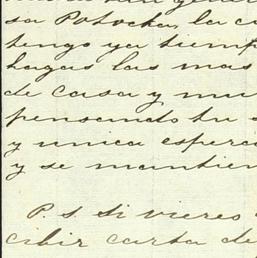 sa Potocka, la c
tengo ya tiemp
hagas las mas
de casa y mu
pensando tu s
y unica espera
y se mantien
P. S. Si vieres
cibir carta de